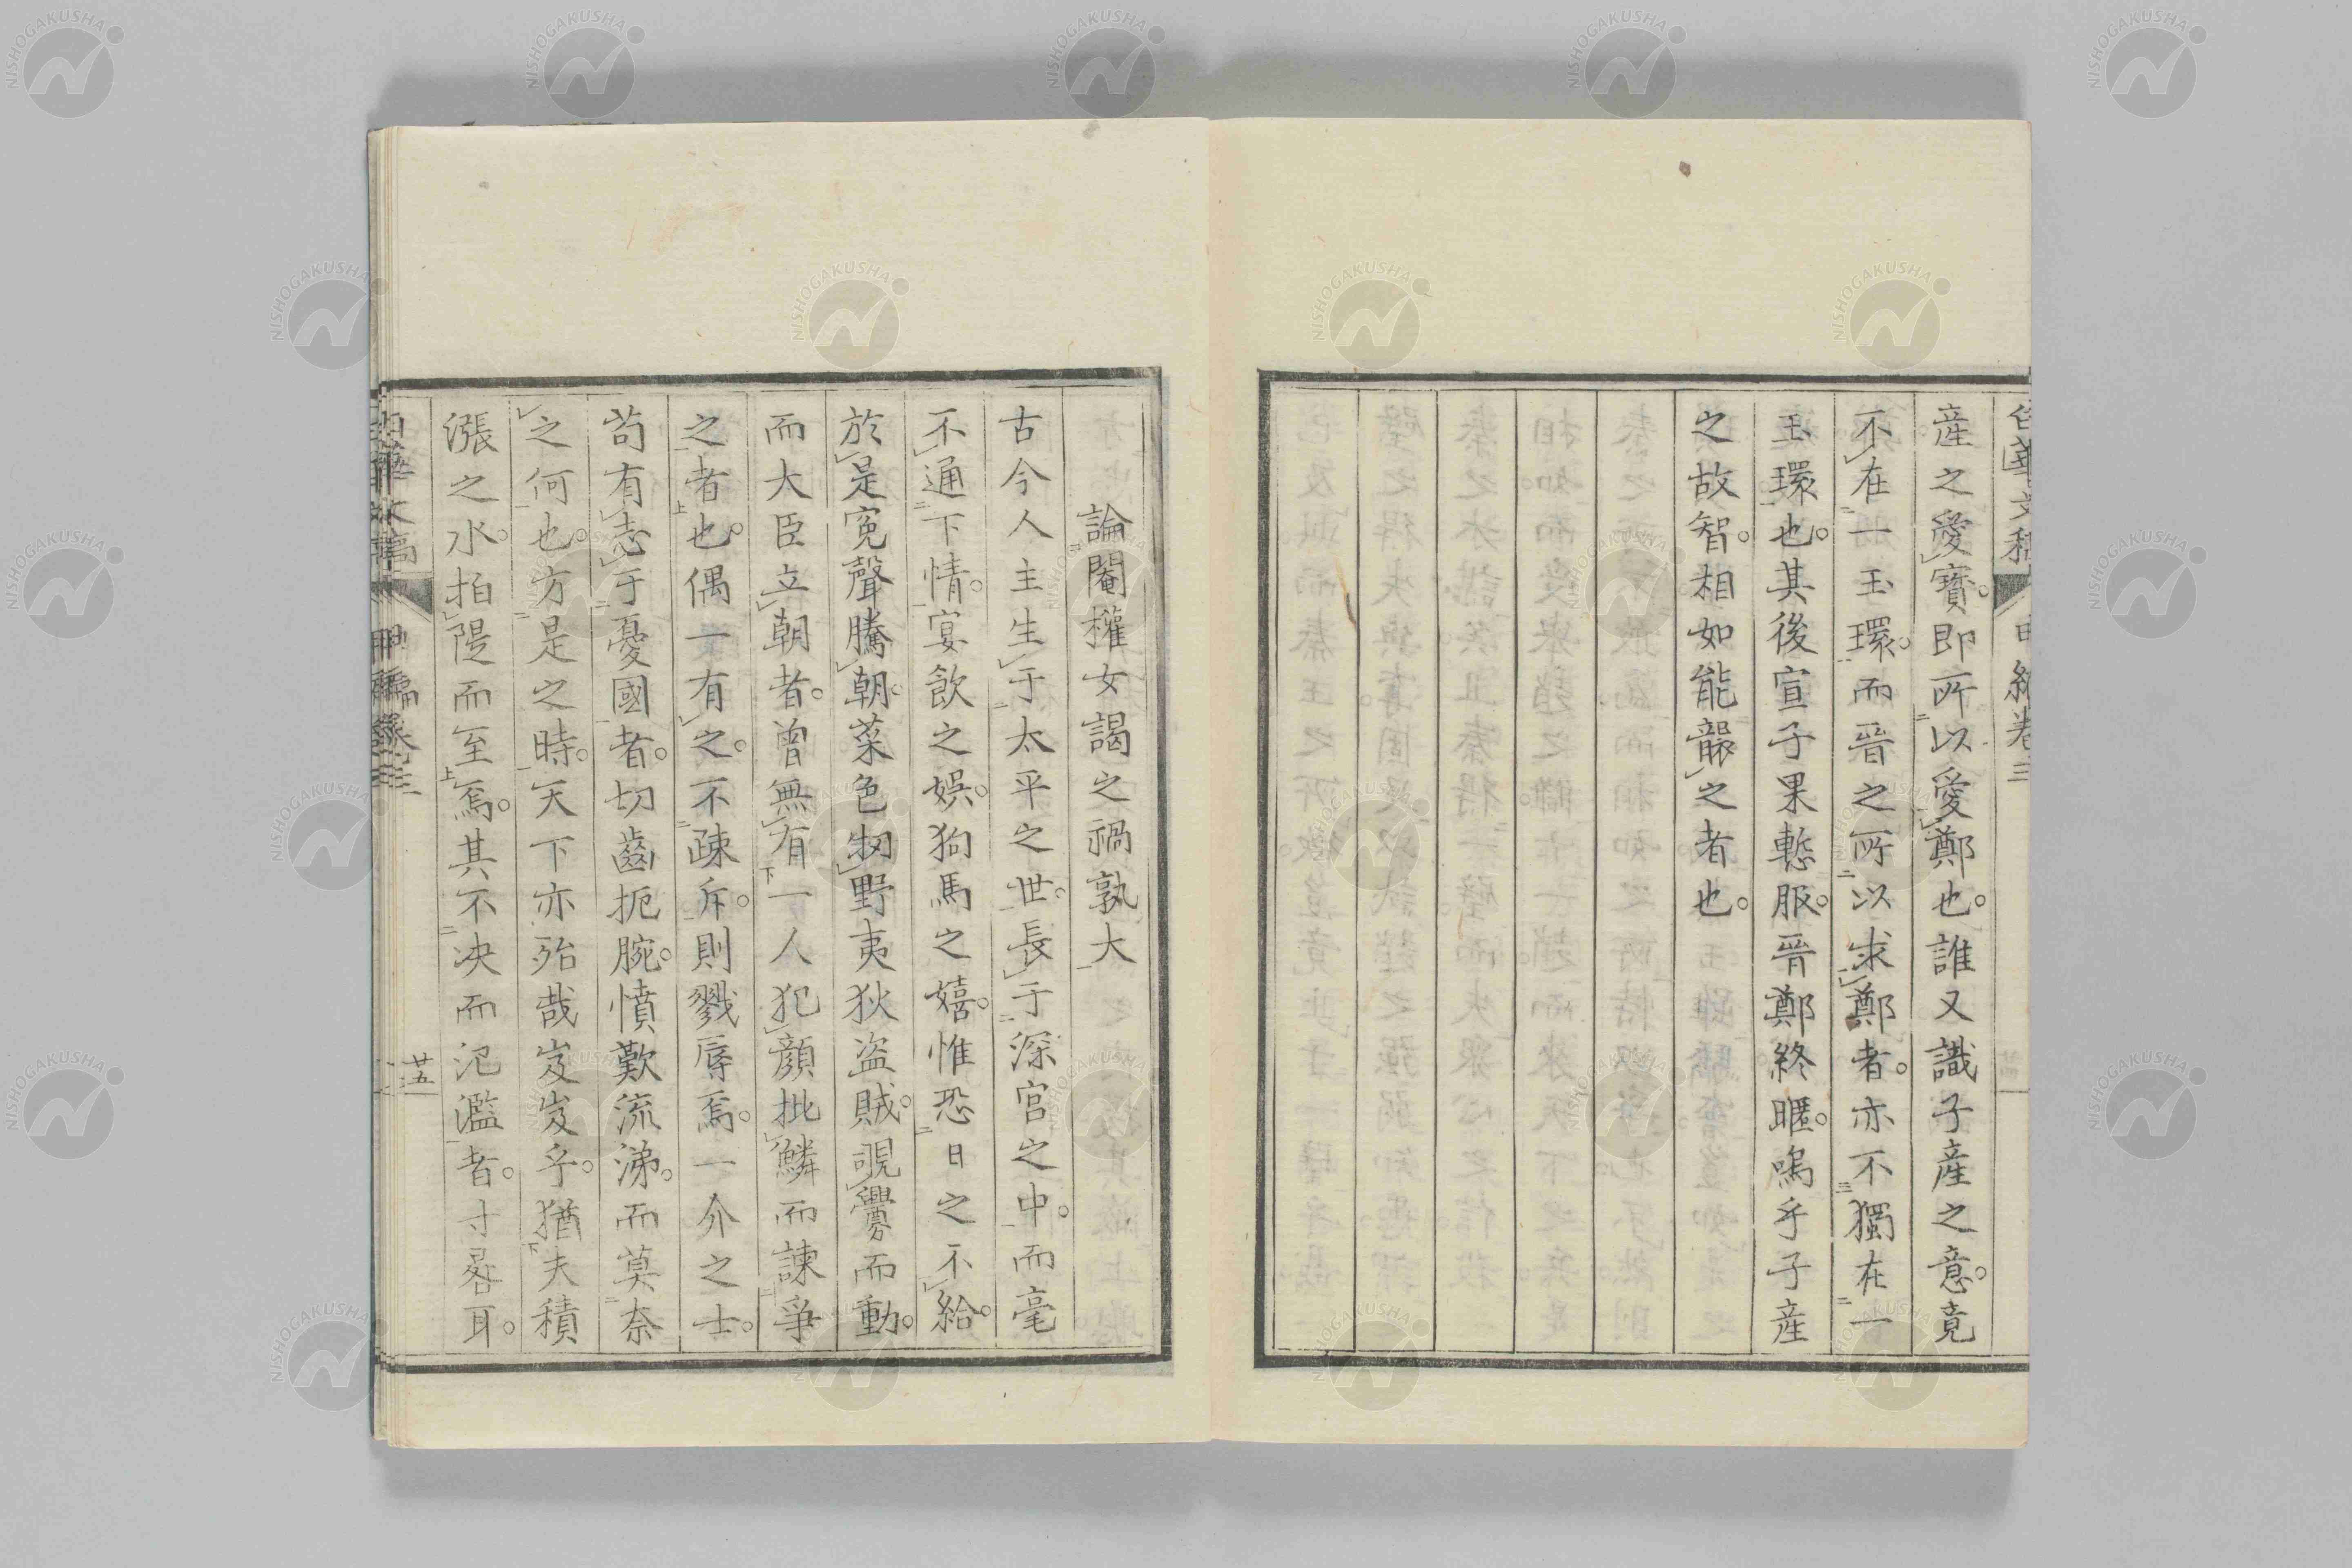 産之愛寶。即所以愛鄭也。誰又識子産之意。竟
不在一玉環。而晉之所以求鄭者。亦不獨在一
玉環也。其後宣子果慙服。晉鄭終暱。嗚乎子産
之故智。相如能襲之者也。
論閹權女謁之禍孰大
古今人主生于太平之世。長于深宮之中。而毫
不通下情。宴飲之娯。狗馬之嬉。惟恐日之不給。
於是寃聲騰朝。菜色牣野夷狄盗賊。覗釁而動。
而大臣立朝者。曾無有一人犯顔批鱗而諫爭
之者也。偶一有之。不疎斥。則戮辱焉。一介之士。
苟有志于憂國者。切齒扼腕。憤歎流涕。而莫奈
之何也。方是之時。天下亦殆哉岌岌乎。猶夫積
漲之水。拍隄而至焉。其不决而氾濫者。寸晷耳。
廿五
NISHOGAKUSHA